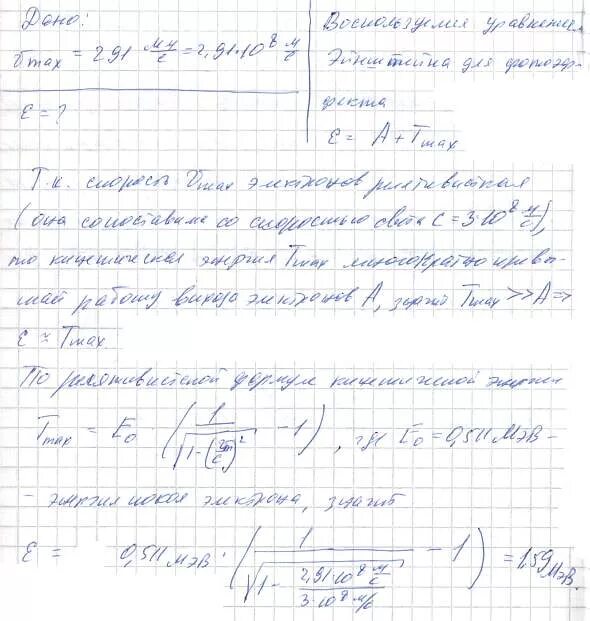 Дано:
Воспользуемся уравнением
υmax = 291 Мм/с = 2,91·10⁸ м/с
Эйнштейна для фотоэф-
фекта
ε = ?
ε = A + Tmax
Т.к. скорость υmax электронов релятивистская
(она сопоставима со скоростью света c = 3·10⁸ м/с),
то кинетическая энергия Tmax многократно превы-
шает работу выхода электронов A, значит Tmax >> A =>
ε ≈ Tmax
По релятивистской формуле кинетической энергии
Tmax = E₀ · (1/√(1-(υm/c)²) - 1), где E₀ = 0,511 МэВ -
- энергия покоя электрона, значит
ε = 0,511 МэВ · (1/√(1 - 2,91·10⁸ м/с / 3·10⁸ м/с) - 1) = 1,59 МэВ.